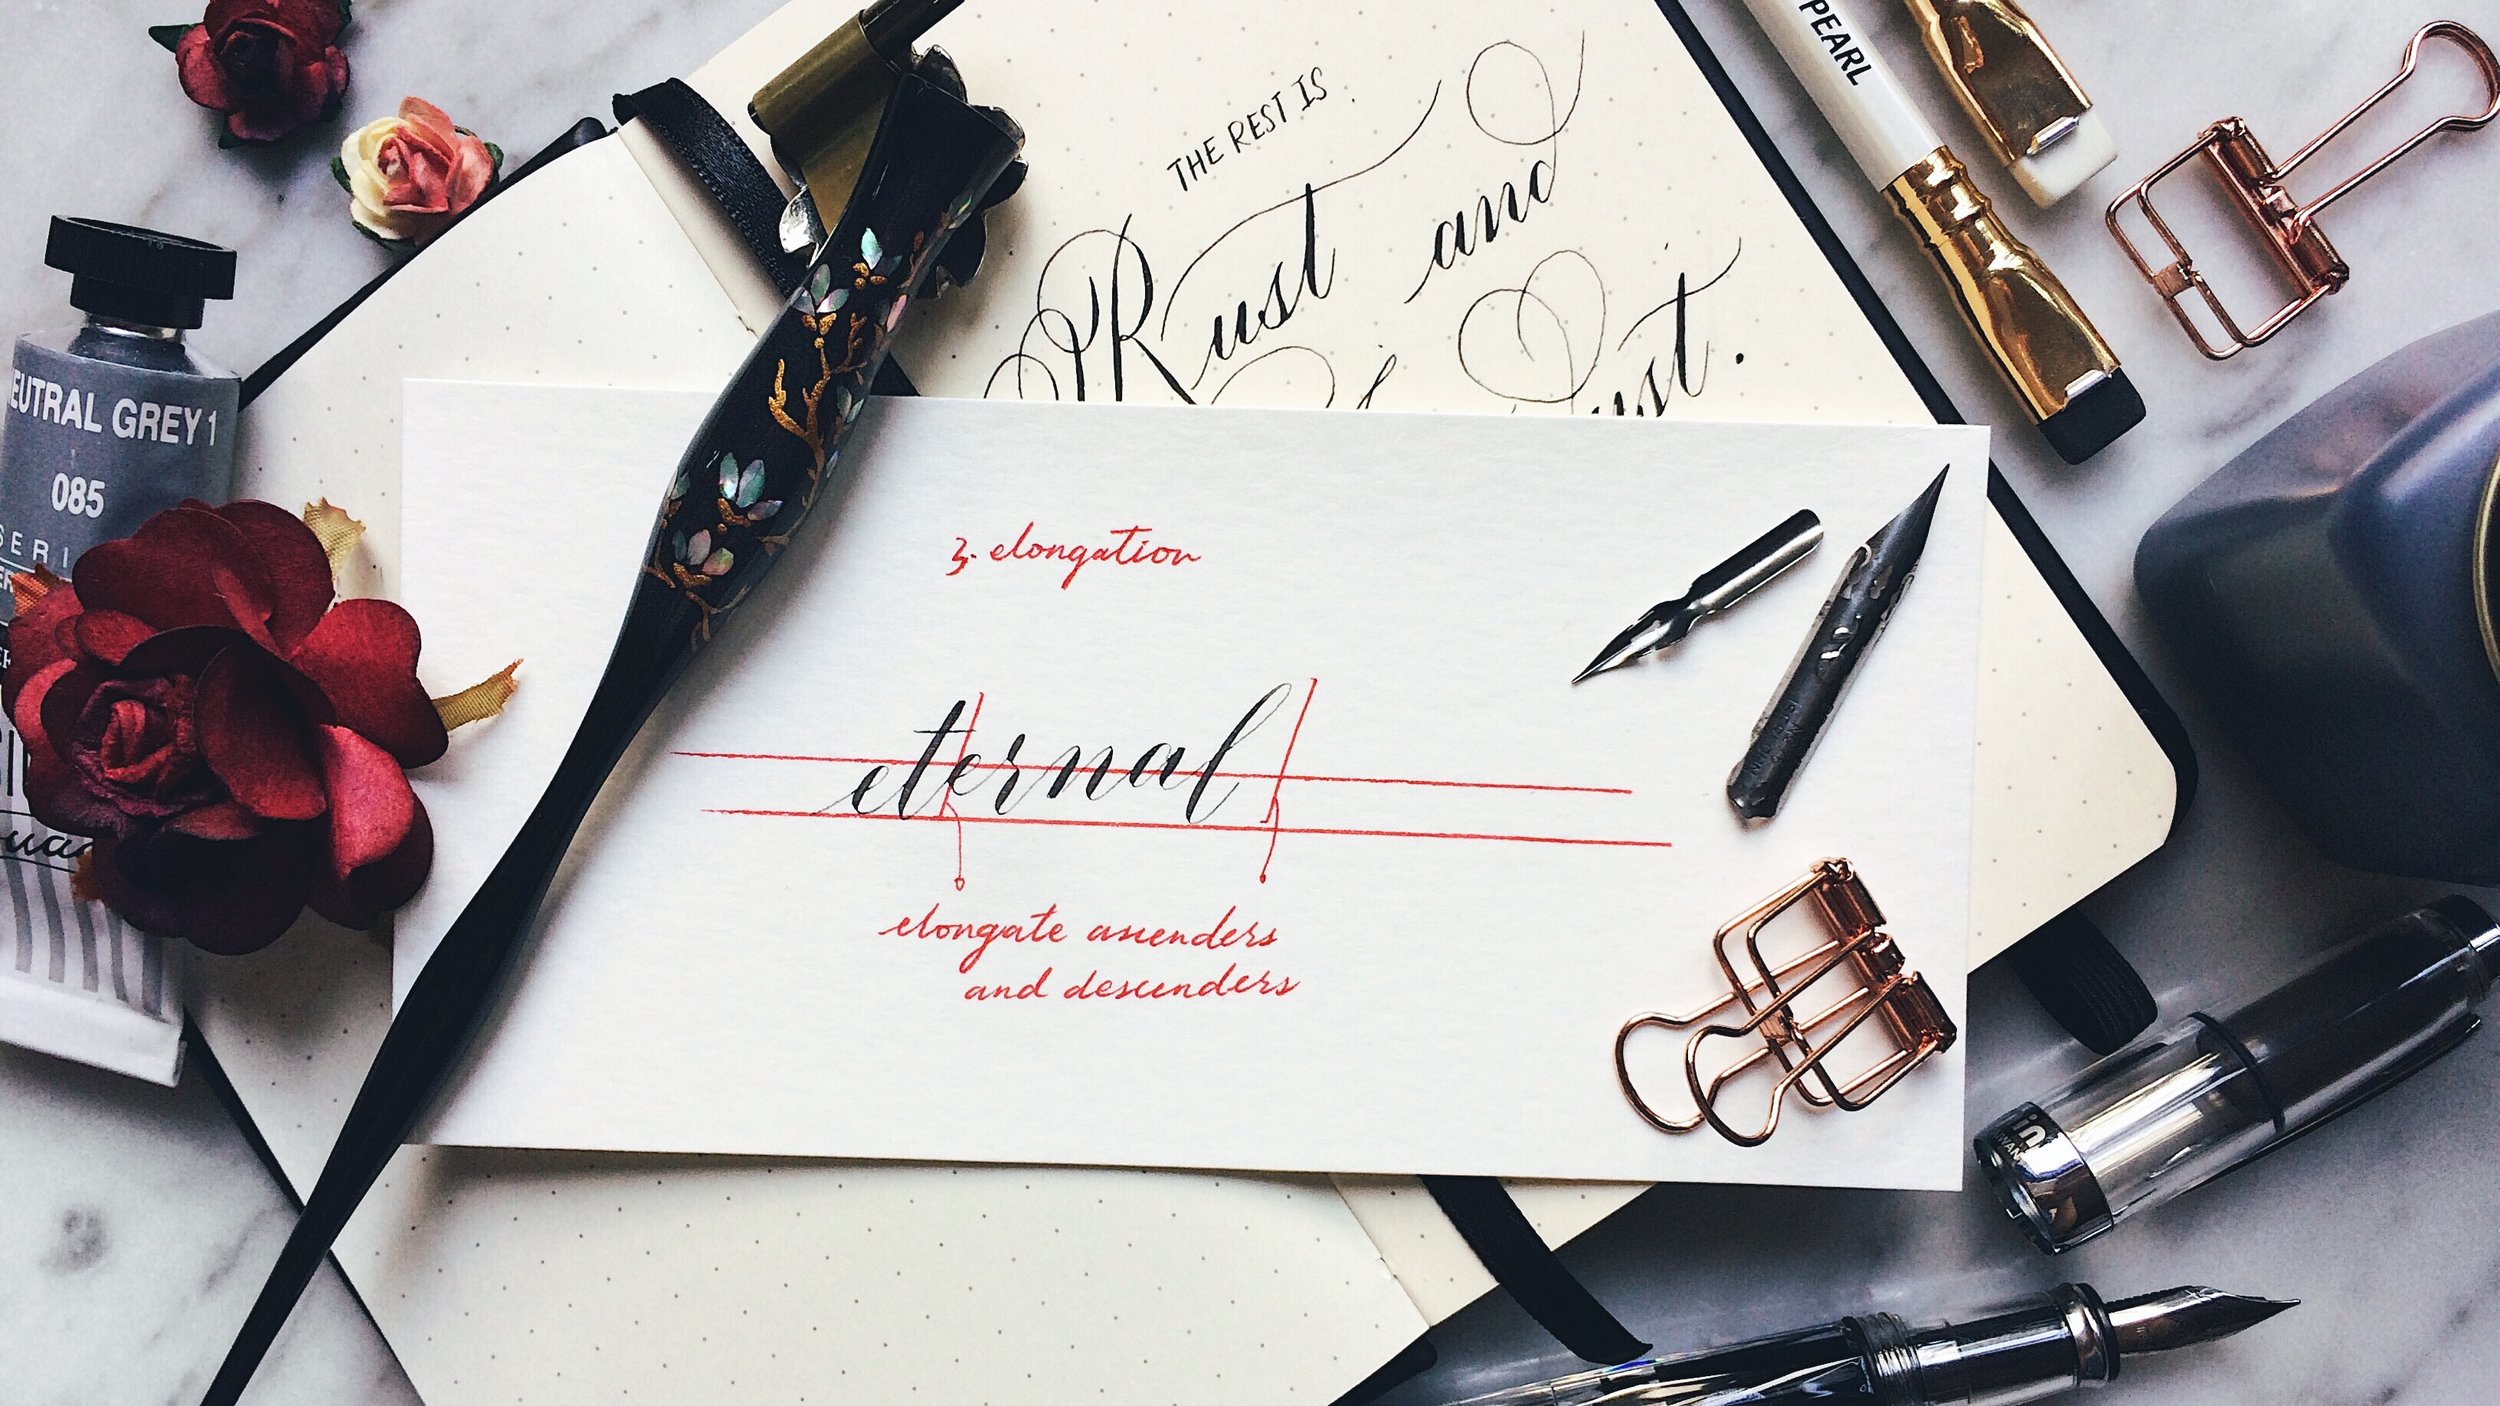 PEARL
THE REST IS
Rust and
NEUTRAL GREY 1
085
SERI
3. elongation
eternal
elongate ascenders
and descenders